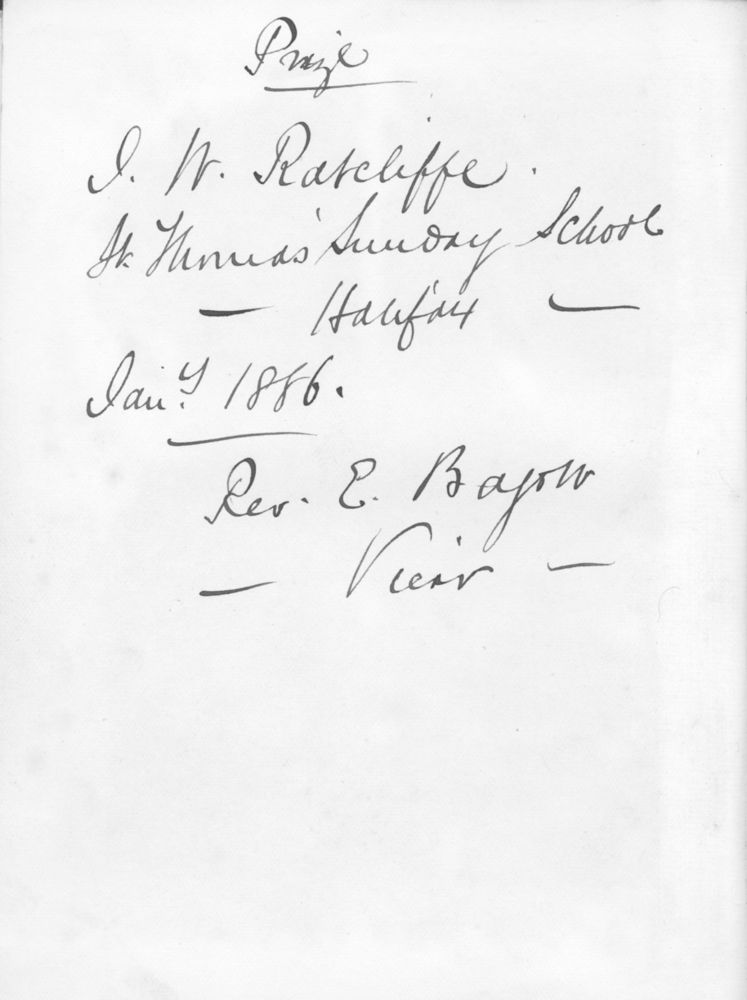 Prize
J. W. Ratcliffe.
St. Thomas' Sunday School
— Halifax —
Jany. 1886.
Rev. E.
— Vicar —